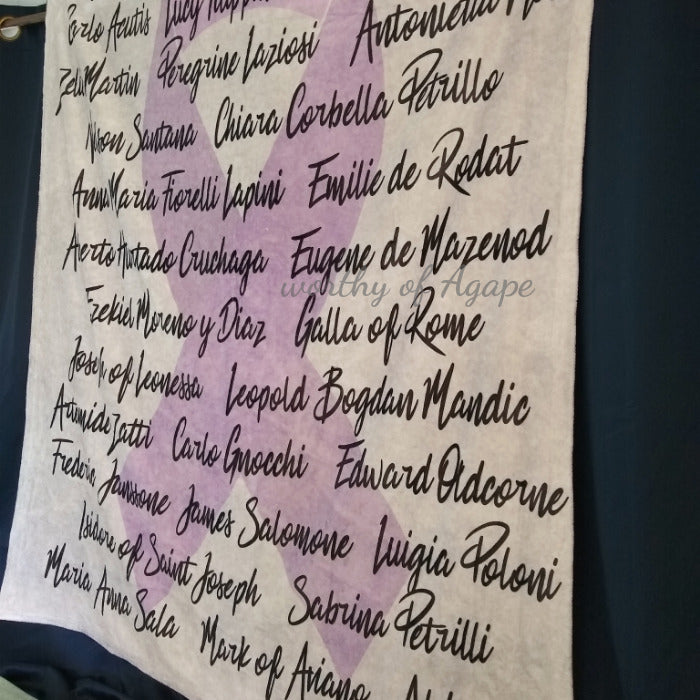 Carlo Acutis Lucy Filippini
Zelie Martin Peregrine Laziosi Antonietta
Nilson Santana Chiara Corbella Petrillo
Anna Maria Fiorelli Lapini Emilie de Rodat
Alberto Hurtado Cruchaga Eugene de Mazenod
worthy of Agape
Ezekiel Moreno y Diaz Galla of Rome
Joseph of Leonessa Leopold Bogdan Mandic
Artemide Zatti Carlo Gnocchi Edward Oldcorne
Frederic Janssoone James Salomone Luigia Poloni
Isidore of Saint Joseph Sabrina Petrilli
Maria Anna Sala Mark of Aviano